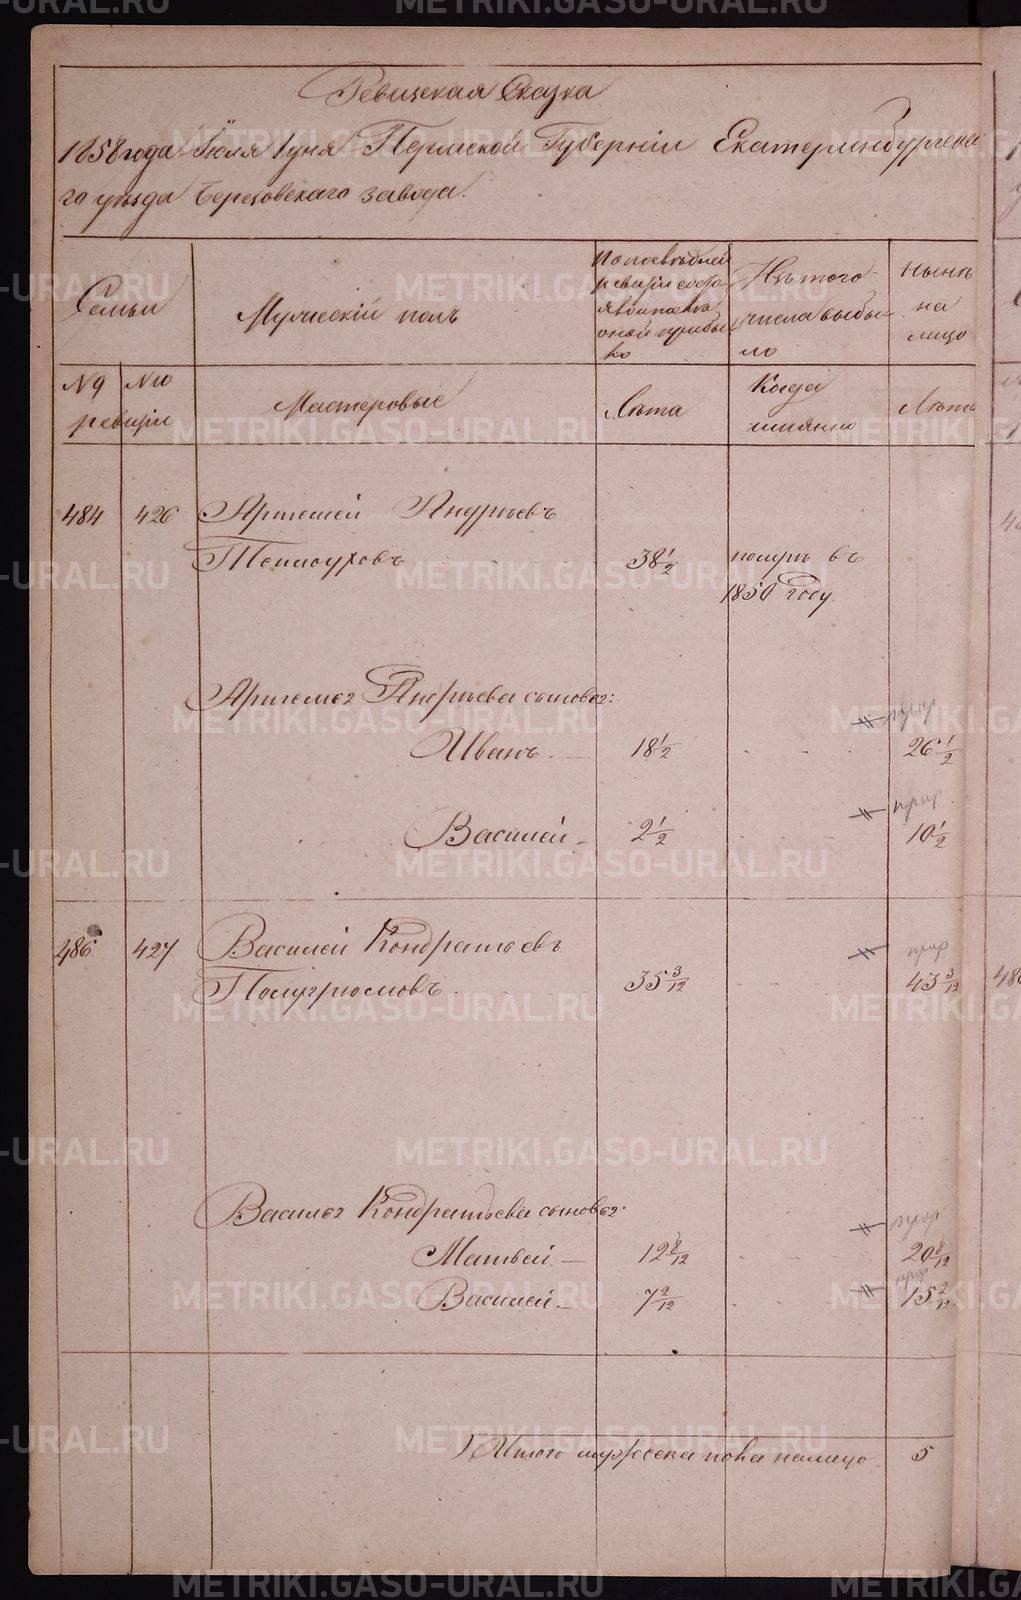 Ревизская Сказка
1858 года Іюля 1 дня Пермской Губерніи Екатеринбургска
го уѣзда Березовскаго завода.
Семьи
Мужескій полъ
По послѣдней
ревизіи состо
яло и послѣ
оной прибы
ло
Изъ того
числа выбы
ло
Нынѣ
на
лицо
№ 9
№ 10
ревизіи
Мастеровые
Лѣта
Когда
именно
Лѣта
484 426 Артемей Андреевъ
Теплоуховъ 38 1/2 померъ въ
1850 году.
Артемья Андреева сыновья:
Иванъ. 18 1/2 26 1/2
Василей 2 1/2 10 1/2
486 427 Василей Кондратьевъ
Полугрюмовъ. 35 3/12 43 3/12
Василья Кондратьева сыновья:
Матвей 12 8/12 20 8/12
Василей 7 2/12 15 2/12
Итого мужеска пола налицо 5
METRIKI.GASO-URAL.RU